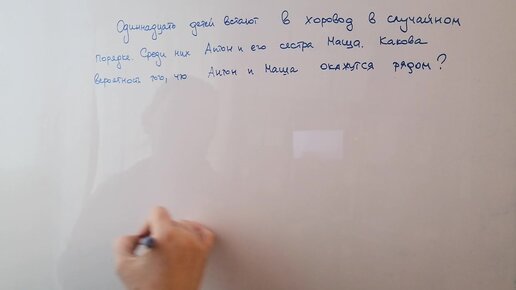 Одиннадцать детей встают в хоровод в случайном
порядке. Среди них Антон и его сестра Маша. Какова
вероятность того, что Антон и Маша окажутся рядом?